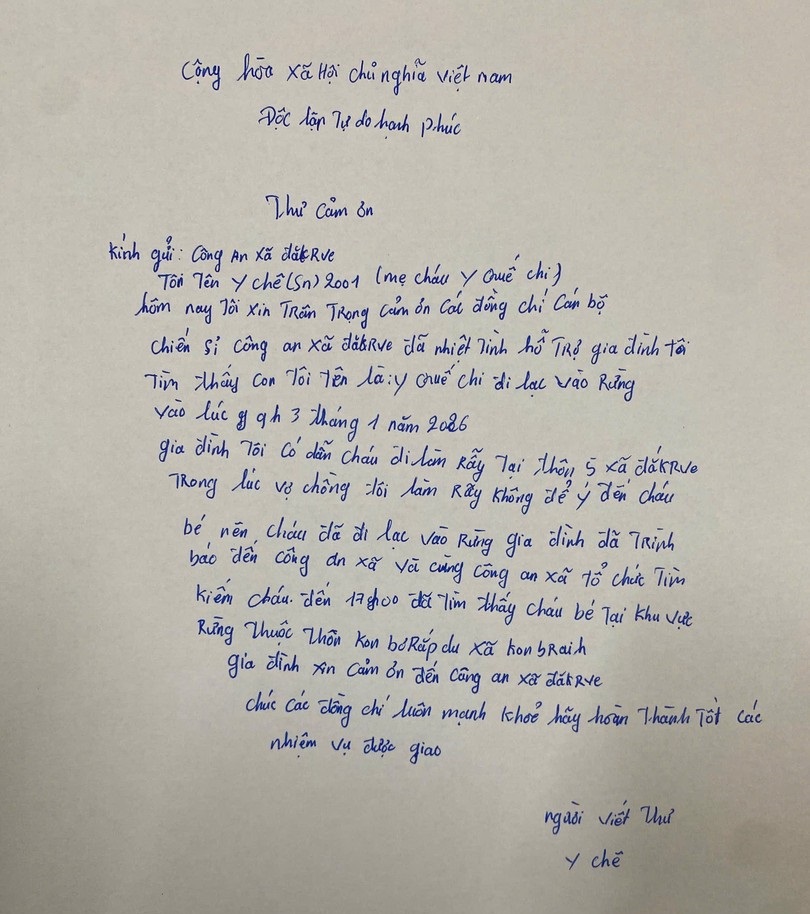 Cộng hòa xã Hội chủ nghĩa việt nam
Độc lập Tự do hạnh phúc
Thư cảm ơn
Kính gửi: Công An xã đăkRve
Tôi Tên Y chê (Sn) 2001 (mẹ cháu Y Quế chi)
hôm nay Tôi xin Trân Trọng cảm ơn các đồng chí cán bộ
chiến sĩ công an xã đăkRve đã nhiệt Tình hỗ Trợ gia đình tôi
Tìm thấy con Tôi Tên là: Y Quế chi đi lạc vào Rừng
vào lúc 9h 3 tháng 1 năm 2026
gia đình Tôi có dẫn cháu đi làm Rẫy Tại thôn 5 xã đắkRve
Trong lúc vợ chồng tôi làm Rẫy không để ý đến cháu
bé nên cháu đã đi lạc vào Rừng gia đình đã Trình
báo đến công an xã và cùng công an xã tổ chức Tìm
kiếm cháu. đến 17h00 đã Tìm thấy cháu bé Tại khu vực
Rừng Thuộc Thôn Kon bơRắp du xã Kon bRaih
gia đình xin cảm ơn đến công an xã đăkRve
chúc các đồng chí luôn mạnh khoẻ hãy hoàn Thành Tốt các
nhiệm vụ được giao
người viết Thư
Y chê